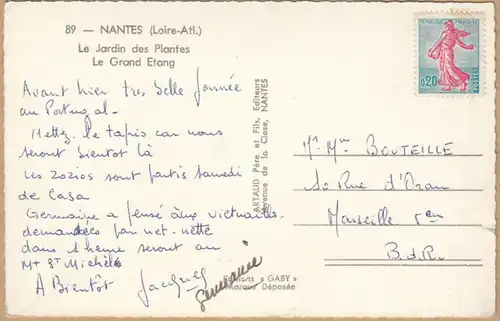 89 — NANTES (Loire-Atl.)
Le Jardin des Plantes
Le Grand Etang
Avant hier tres belle journée
au Portugal -
Mettez le tapis car nous
seront bientot là
Les zozios sont partis samedi
de Casa
Germaine a pensé aux victuailles
demandées par net-nette
dans 1 heure seront au
Mt St Michel
A Bientôt Jacques
Germaine
ARTAUD Père et Fils, Editeurs
Avenue de la Close, NANTES
Editions « GABY »
Marque Déposée
REPUBLIQUE FRANCAISE
0,20
POSTES
Mr Mme BOUTEILLE
10 Rue d'Oran
Marseille 5em
B.d.R.